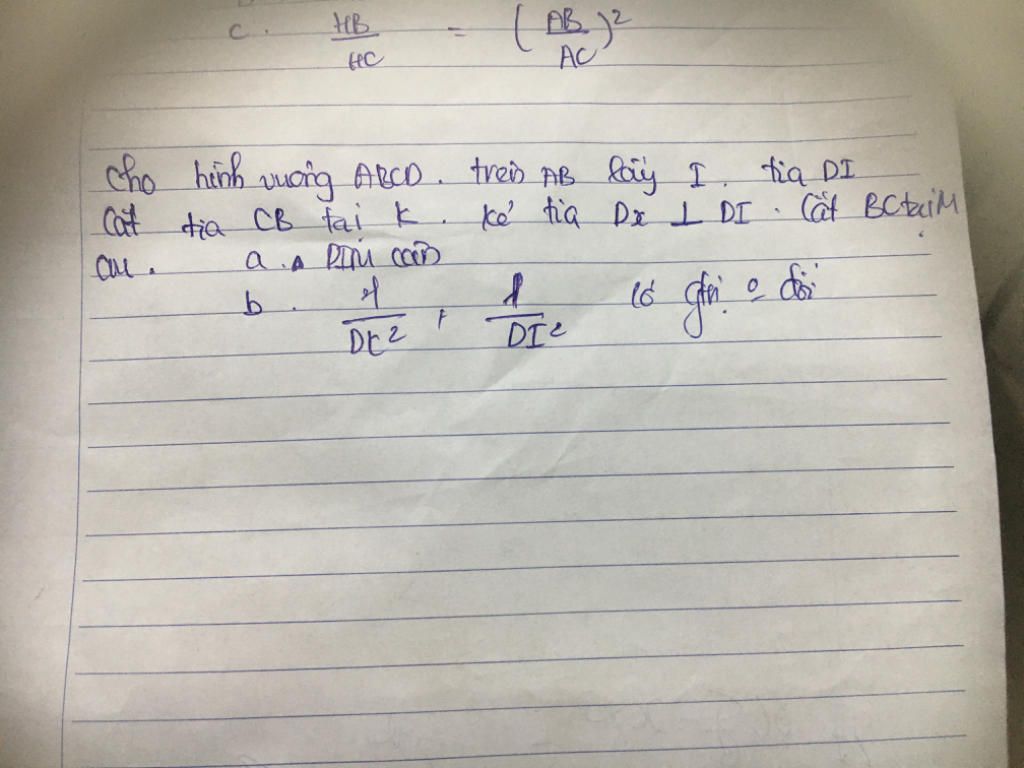 c. HB/HC = (AB/AC)²
Cho hình vuông ABCD. trên AB lấy I. tia DI
Cắt tia CB tại K. kẻ tia Dx ⊥ DI. Cắt BC tại M
CM. a. △ DIM cân
b. 1/DK² + 1/DI² có gtrị o đổi